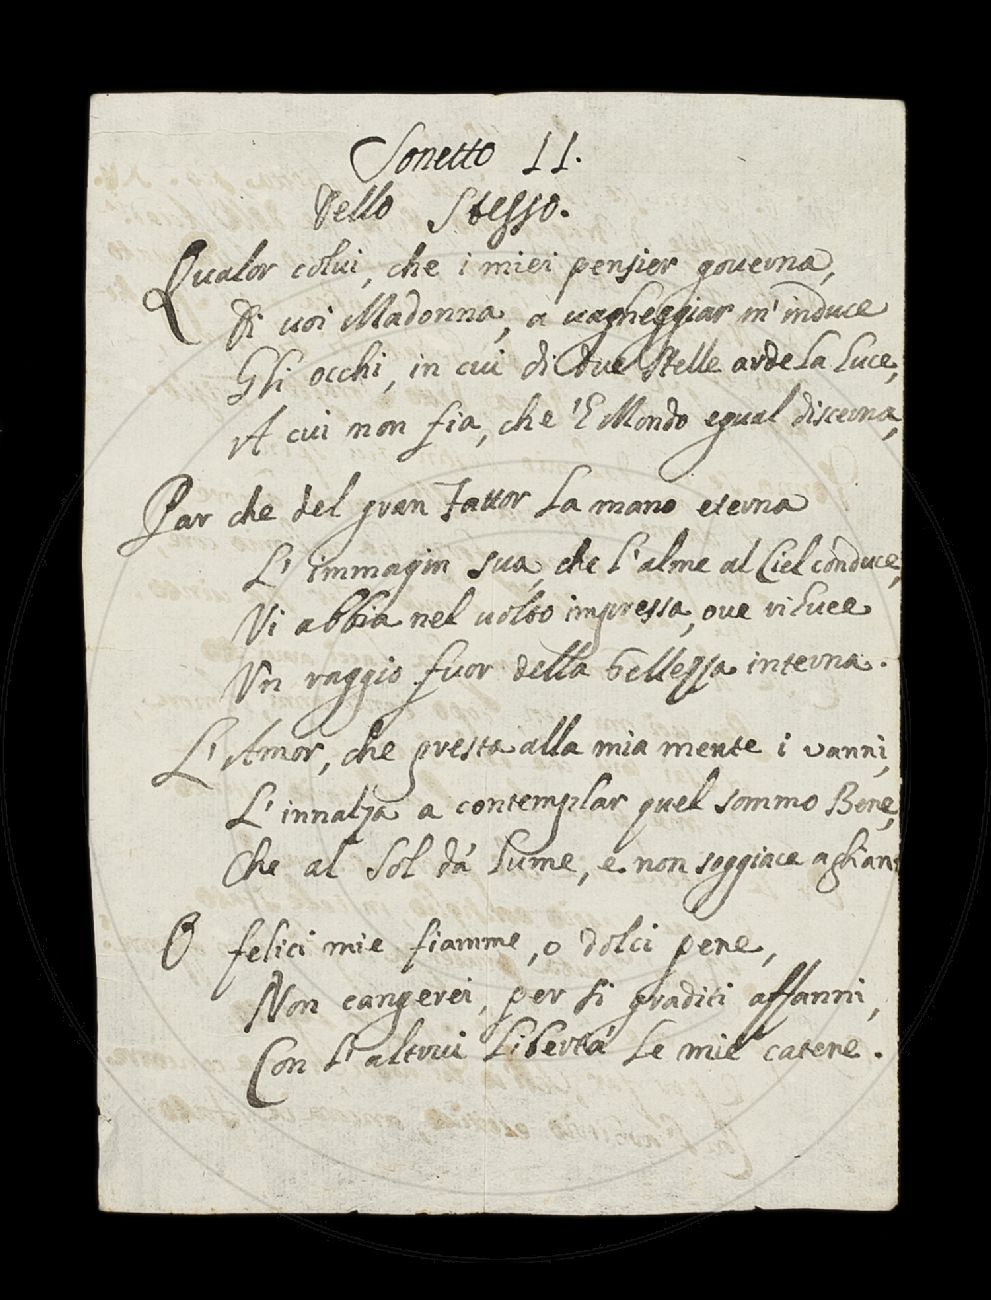 Sonetto II.
Dello Stesso.
Qualor colui, che i miei pensier governa,
Di voi Madonna, a vagheggiar m' induce
Gli occhi, in cui di due Stelle arde La Luce,
A cui non fia, che 'l Mondo egual discerna,
Par che del gran Fattor La mano eterna
L' immagin sua, che l' alme al Ciel conduce,
Vi abbia nel volto impressa, ove riluce
Un raggio fuor della bellezza interna.
L' Amor, che presta alla mia mente i vanni,
L' innalza a contemplar quel sommo Bene,
Che al Sol dà lume, e non soggiace agli
O felici mie fiamme, o dolci pene,
Non cangerei, per sì graditi affanni,
Con l' altrui Libertà Le mie catene.